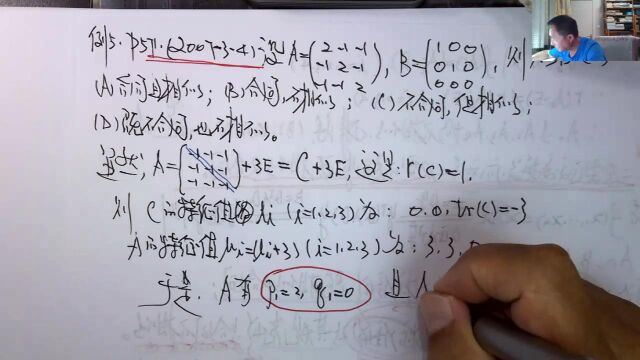 例5. P57.(2007-3-4):设A=(2 -1 -1 -1 2 -1 -1 -1 2), B=(1 0 0 0 1 0 0 0 0), 则
(A)合同且相似; (B)合同,不相似; (C)不合同,但相似;
(D)既不合同,也不相似。
A=(-1 -1 -1 -1 -1 -1 -1 -1 -1)+3E=C+3E, 这里:r(C)=1.
则 C的特征值 μi (i=1,2,3)为: 0,0,tr(C)=-3
A的特征值 (i=1,2,3)为: 3,3,0
于是. A有 p₁=2, q₁=0 且